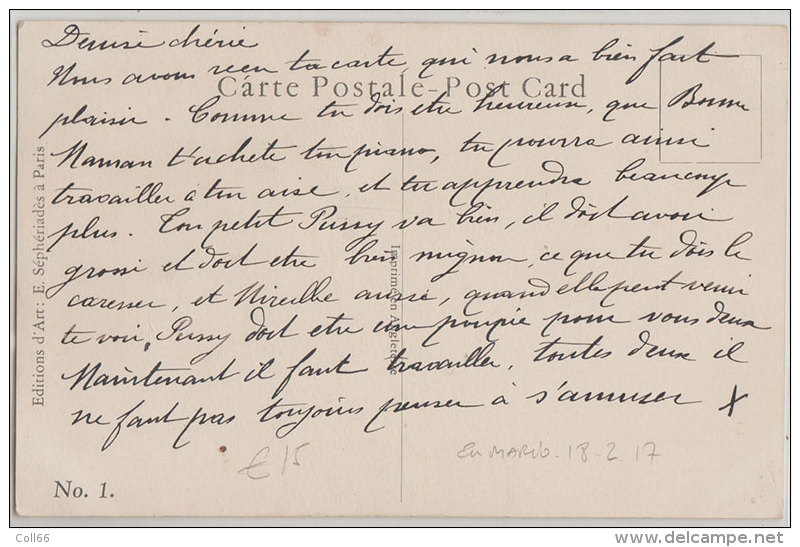 Denise chérie
Nous avons reçu ta carte, qui nous a bien fait
Carte Postale-Post Card
plaisir. Comme tu dois etre heureuse, que Bonne
Maman t'achete ton piano, tu pourra ainsi
travailler à ton aise, et tu apprendra beaucoup
plus. Ton petit Pussy va bien, il doit avoir
grossi et doit etre bien mignon, ce que tu dois le
caresser, et Mireille aussi, quand elle peut venir
te voir, Pussy doit etre une poupée pour vous deux
Maintenant il faut travailler, toutes deux il
ne faut pas toujours penser à s'amuser X
Editions d'Art: E. Séphériadès à Paris
Imprimé en Angleterre
€ 15
18-2.17
No. 1.
Coll66
http://www.delcampe.net